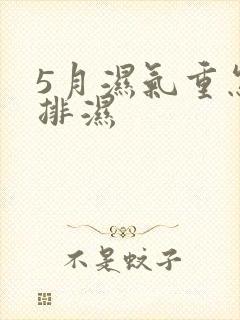 5月濕氣重怎
排濕
不是蚊子